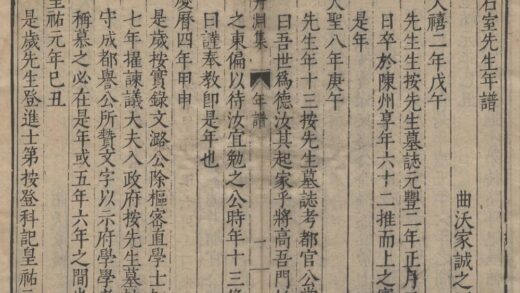 石室先生年譜
曲沃家誠之
天禧二年戊午
先生生按先生墓誌元豐二年正月
日卒於陳州享年六十二推而上之實
是年
天聖八年庚午
先生年十三按先生墓誌考都官公嘗
丹淵集 年譜 一
曰吾世爲德汝其起家乎將高吾門
之東偏以待汝宜勉之公時年十三
曰謹奉教卽是年也
慶曆四年甲申
是歲按實錄文潞公除樞密直學士知
七年擢諫議大夫入政府按先生墓
守成都譽公所贄文字以示府學學
稱慕之必在是年或五年六年之間
皇祐元年己丑
是歲先生登進士第按登科記皇祐元